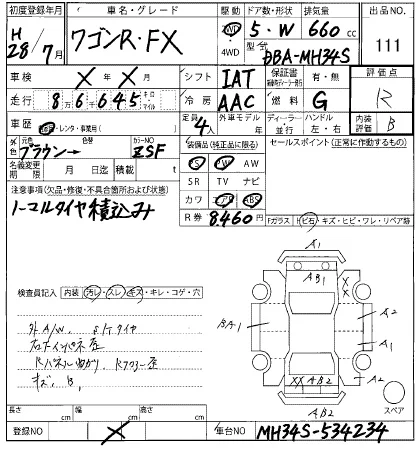 初度登録年月 車名・グレード 駆動 ドア数・形状 排気量 出品NO.
H28/7月 ワゴンR・FX 2WD・4WD 5・W 660cc 111
型式 DBA-MH34S
車検 X年X月 シフト IAT 保証書 有・無 評価点
走行 86645 キロ マイル 冷房 AAC 燃料 G R
車歴 自家・レンタ・事業用( ) 定員 4人 外車モデル 年 ディーラー・並行 ハンドル 左・右 内装 B
外色 元色 ブラウン→ 色替 カラーNO ZSF 装備品(純正品に限る) セールスポイント(正常に作動するもの)
名義変更期限 月 日迄 積載 t PS PW AW
SR TV ナビ
注意事項(欠品・修復・不具合箇所および状態) カワ エアB ABS
ノーマルタイヤ積込み R券 8.460円
Fガラス トビ石・キズ・ヒビ・ワレ・リペア跡
A1
AB1
XX
検査員記入 内装 汚レ・スレ・キズ・キレ・コゲ・穴
BA1 A2
外A/W、S/タイヤ
右Fインパネ歪 A1
Rパネル曲がり、Rフロアー歪
キズ、B、 XX AB2 A2
スペア
AB2
長さ cm 幅 cm 高さ cm
登録NO X 車台NO MH34S-534234